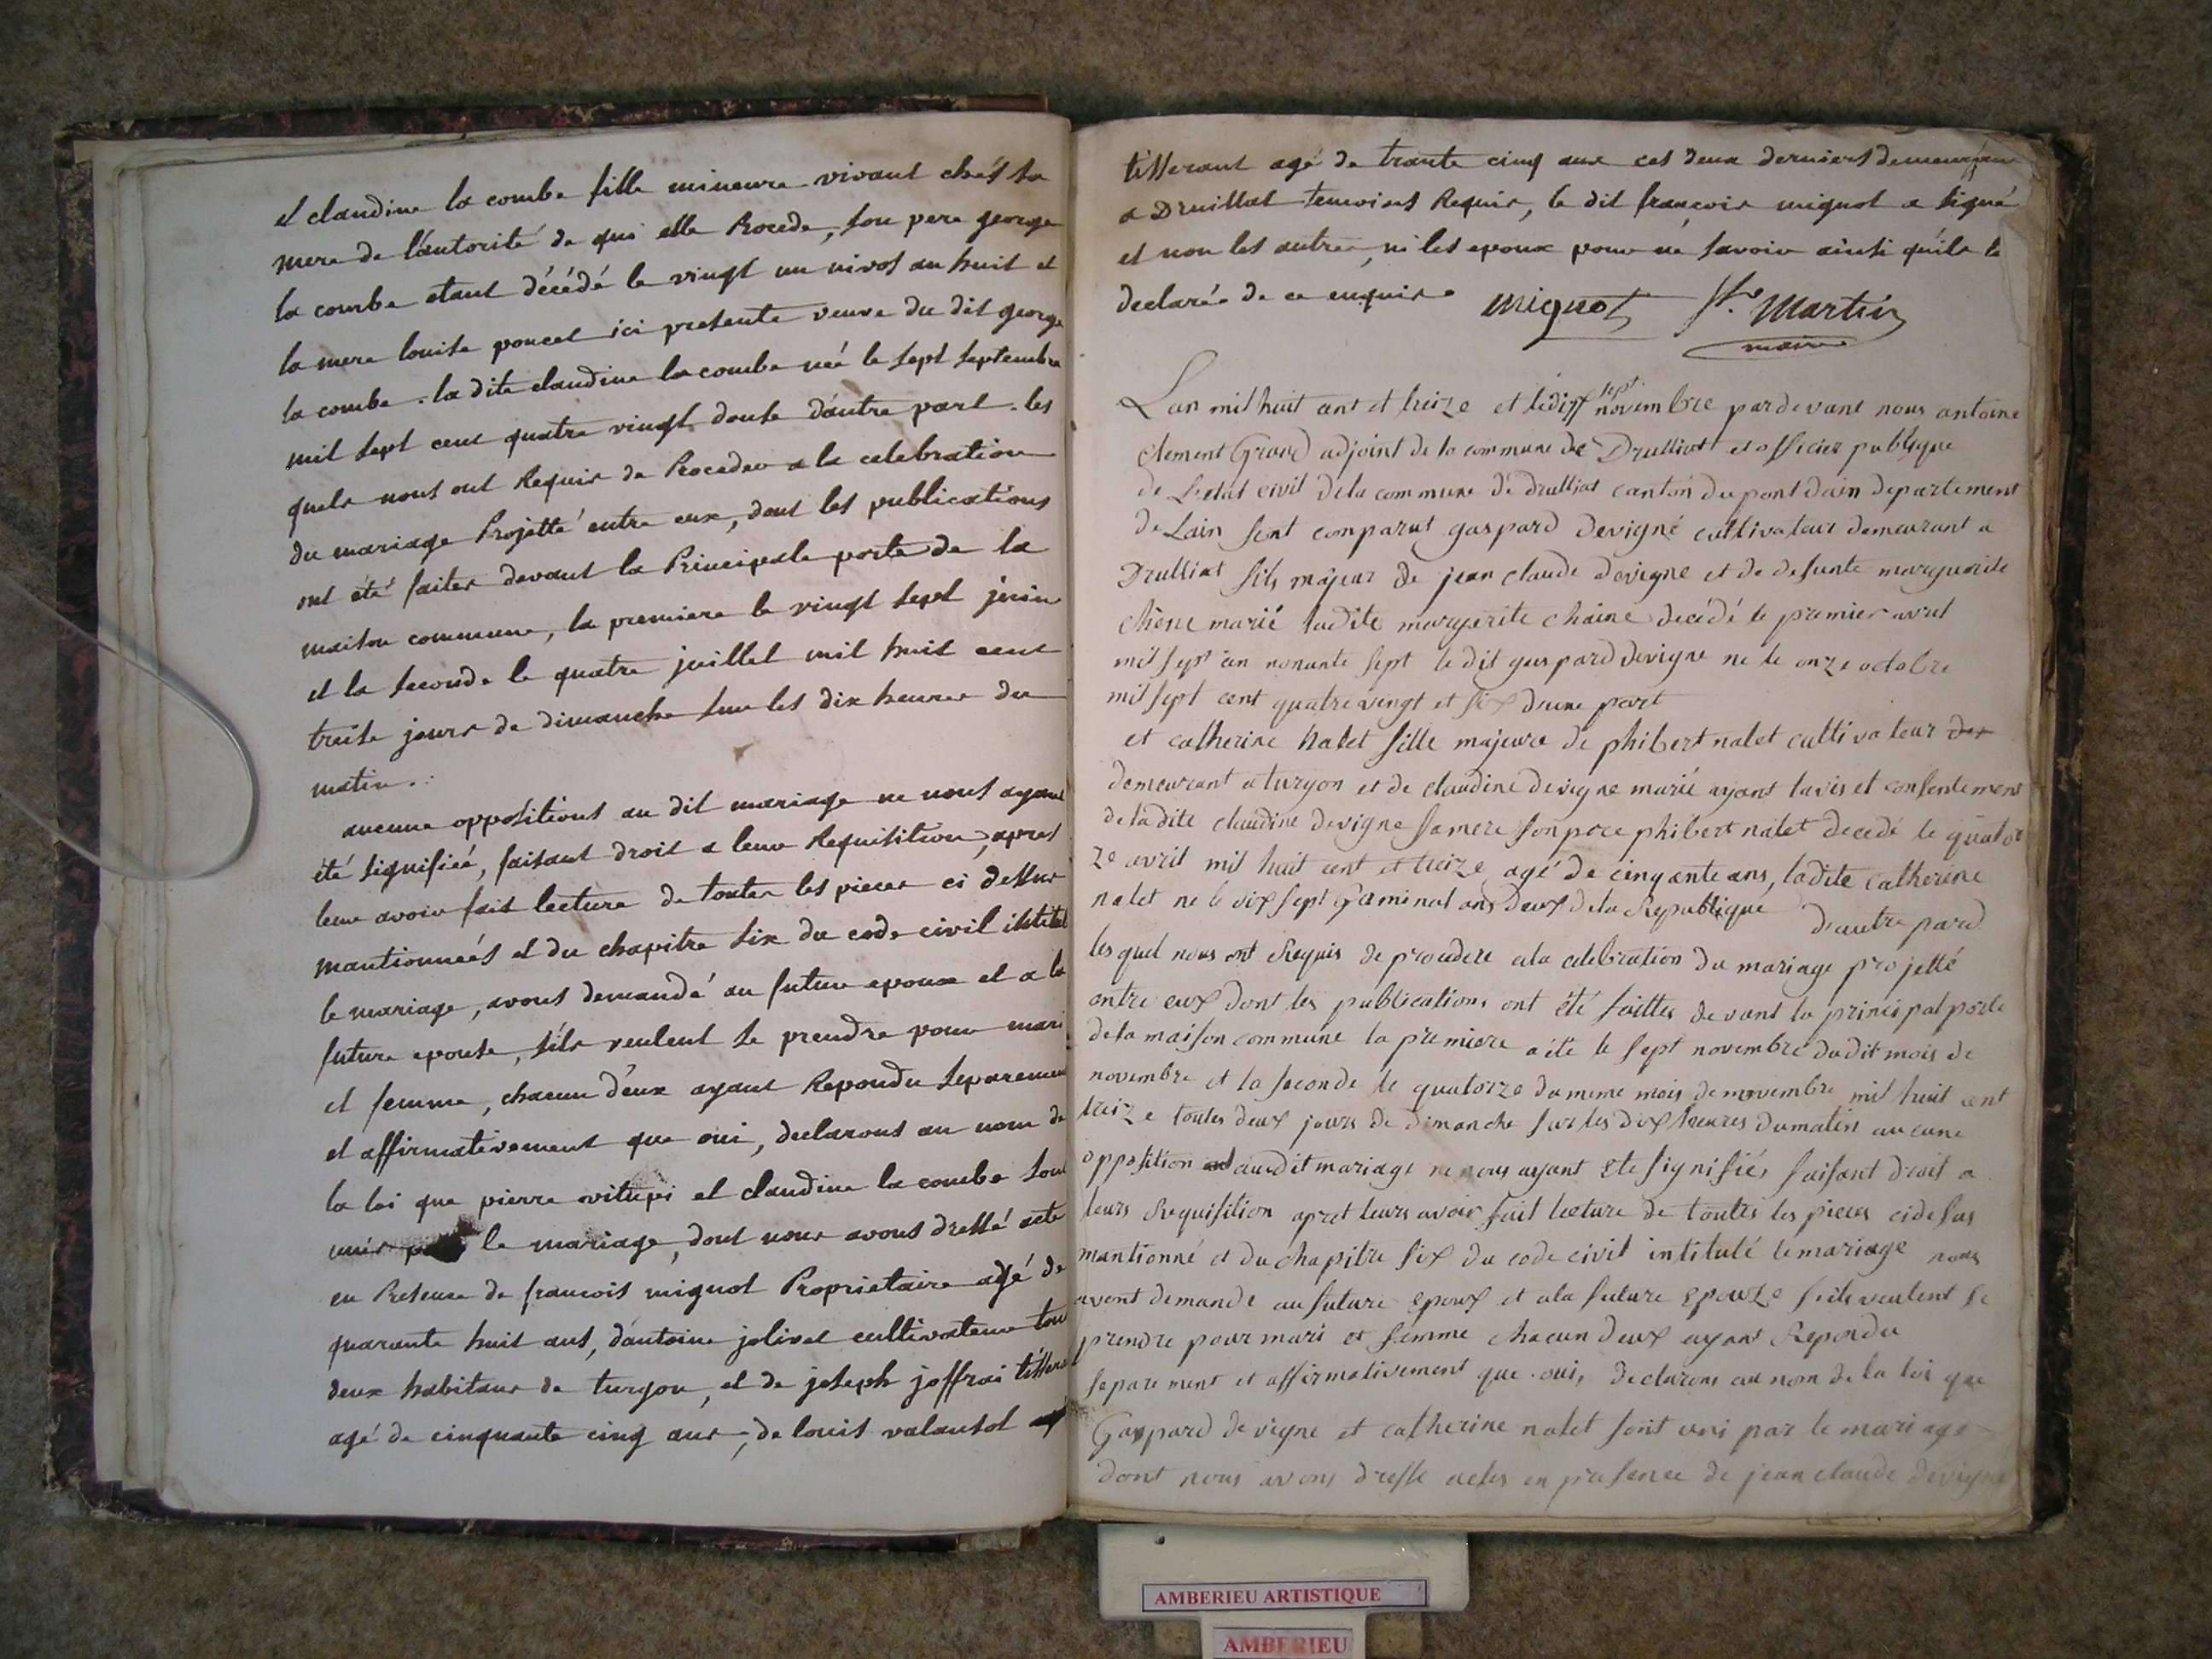 et claudine la combe fille mineure vivant chés sa
mere de l'autorité de qui elle Procede, son pere george
la combe etant décédé le vingt un nivos an huit et
la mere louise poncet ici presente veuve du dit george
la combe. la dite claudine la combe née le sept septembre
mil sept cent quatre vingt douse d'autre part. les
quels nous ont Requis de Proceder a la celebration
du mariage Projetté entre eux, dont les publications
ont été faites devant la Principale porte de la
maison commune, la premiere le vingt sept juin
et la seconde le quatre juillet mil huit cent
treise jours de dimanche sur les dix heures du
matin.
aucune oppositions au dit mariage ne nous ayant
été signifieé, faisant droit a leur Requisition, apres
leur avoir fait lecture de toutes les pieces ci dessus
mantionneés et du chapitre six du code civil
le mariage, avons demandé au futur epoux et a la
future epouse, s'ils veulent se prendre pour mari
et femme, chacun d'eux ayant Repondu separement
et affirmativement que oui, declarons au nom de
la loi que pierre vitupi et claudine la combe sont
unis le mariage, dont nous avons dressé acte
en Presence de francois mignot Proprietaire agé de
quarante huit ans, d'antoine jolivet cultivateur tous
deux habitans de turgon, et de joseph joffrai
agé de cinquante cinq ans, de louis valansot
tisserant agé de trante cinq ans ces deux derniers demeurant
a Druillat temoins Requis, le dit françois mignot a signé
et non les autres, ni les epoux pour ne savoir ainsi qu'ils le
declarés de ce enquis mignot St. Martin
maire
Lan mil huit cent et treize et le dixsept novembre pardevant nous antoine
clement Grand adjoint de la commune de Drulliat et officier publique
de Letat civil dela commune de drulliat canton du pont dain departement
de Lain sont comparut gaspard devigne cultivateur demeurant a
Drulliat fils majeur de jean claude devigne et de defunte marguerite
chêne marié ladite margerite chaine decédé le premier avril
mil sept cen nonante sept le dit gaspard devigne ne le onze octobre
mil sept cent quatre vingt et six d'une part
et catherine nalet fille majeure de phibert nalet cultivateur
demeurant a turgon et de claudine devigne marié ayant lavis et consentement
de ladite claudine devigne sa mere son pere phibert nalet decedé le quator
ze avril mil huit cent et treize, agé de cinqante ans, ladite catherine
nalet ne le dix sept Germinal ans deux dela Republique d'autre pard
les quel nous ont Requis de procedere ala celebration du mariage projetté
entre eux dont les publications ont été faittes devant la principal porte
dela maison commune la premiere a été le sept novembre dudit mois de
novembre et la seconde le quatorze du meme mois de novembre mil huit cent
treize toutes deux jours de dimanche sur les dix heures du matin aucune
opposition audit mariage ne nous ayant ete signifiés faisant droit a
leurs Requisition apret leurs avoir fait lecture de toutes les pieces cidesus
mantionné et du chapitre six du code civil intitulé le mariage nous
avont demandé au future epoux et ala future epouze s'ils veulent se
prendre pour mari et femme chacun deux ayant Repondu
separement et affirmativement que oui, declarons au nom de la loi que
Gaspard devigne et catherine nalet sont uni par le mariage
dont nous avons dresse actes en presence de jean claude devigne
AMBERIEU ARTISTIQUE
AMBERIEU